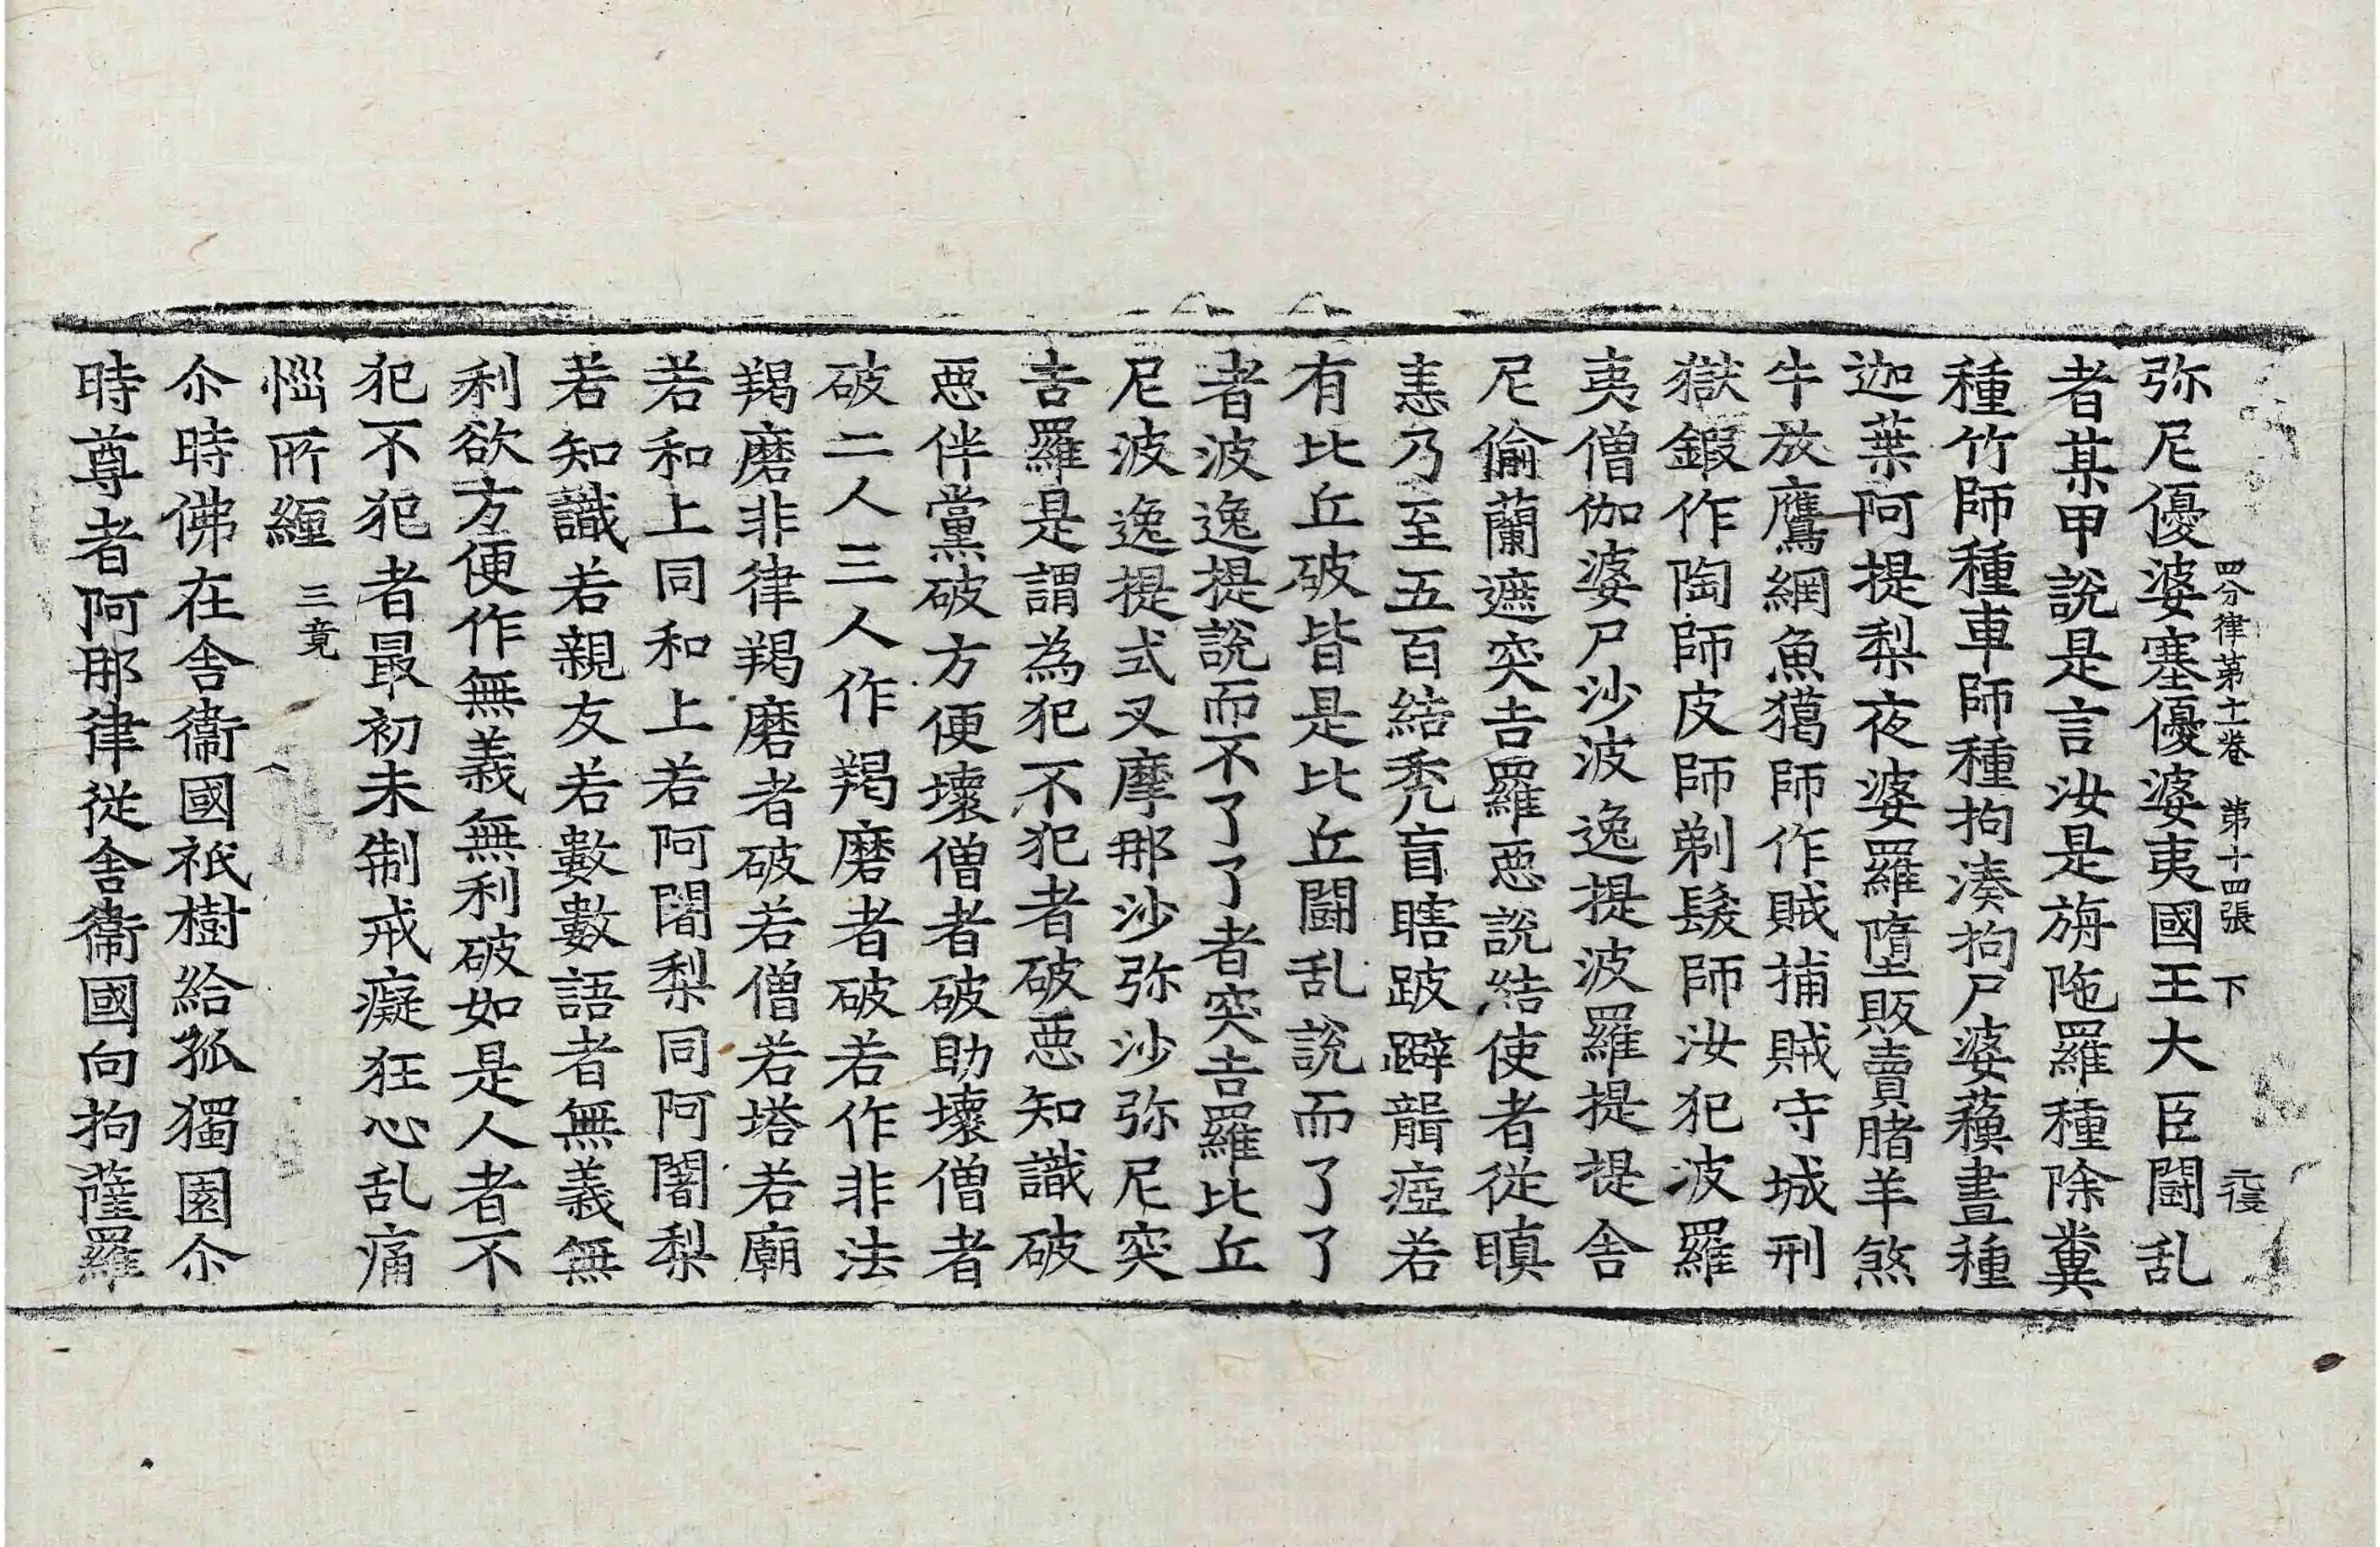 弥尼優婆塞優婆夷國王大臣闘乱
四分律第十一卷 第十四張 下
者某甲說是言汝是旃陁羅種除糞
種竹師種車師種拘湊拘尸婆蘓晝種
迦葉阿提梨夜婆羅墮販賣賭羊煞
牛放鷹網魚獦師作賊捕賊守城刑
獄鍜作陶師皮師剃髮師汝犯波羅
夷僧伽婆尸沙波逸提波羅提提舍
尼偷蘭遮突吉羅惡說結使者從瞋
恚乃至五百結秃盲瞎跛躃聾瘂若
有比丘破皆是比丘闘乱說而了了
者波逸提說而不了了者突吉羅比丘
尼波逸提式叉摩那沙弥沙弥尼突
吉羅是謂為犯不犯者破惡知識破
惡伴黨破方便壞僧者破助壞僧者
破二人三人作羯磨者破若作非法
羯磨非律羯磨者破若僧若塔若廟
若和上同和上若阿闍梨同阿闍梨
若知識若親友若數數語者無義無
利欲方便作無義無利破如是人者不
犯不犯者最初未制戒癡狂心乱痛
惱所纏 三竟
尒時佛在舍衞國祇樹給孤獨園尒
時尊者阿那律從舍衞國向拘薩羅